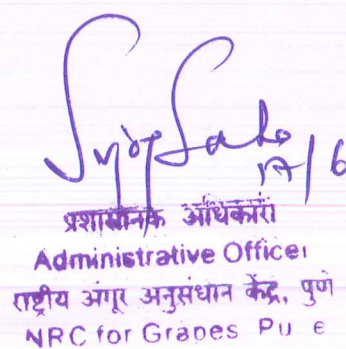 17/6
प्रशासनिक अधिकारी
Administrative Officer
राष्ट्रीय अंगूर अनुसंधान केंद्र, पुणे
NRC for Grapes Pu e